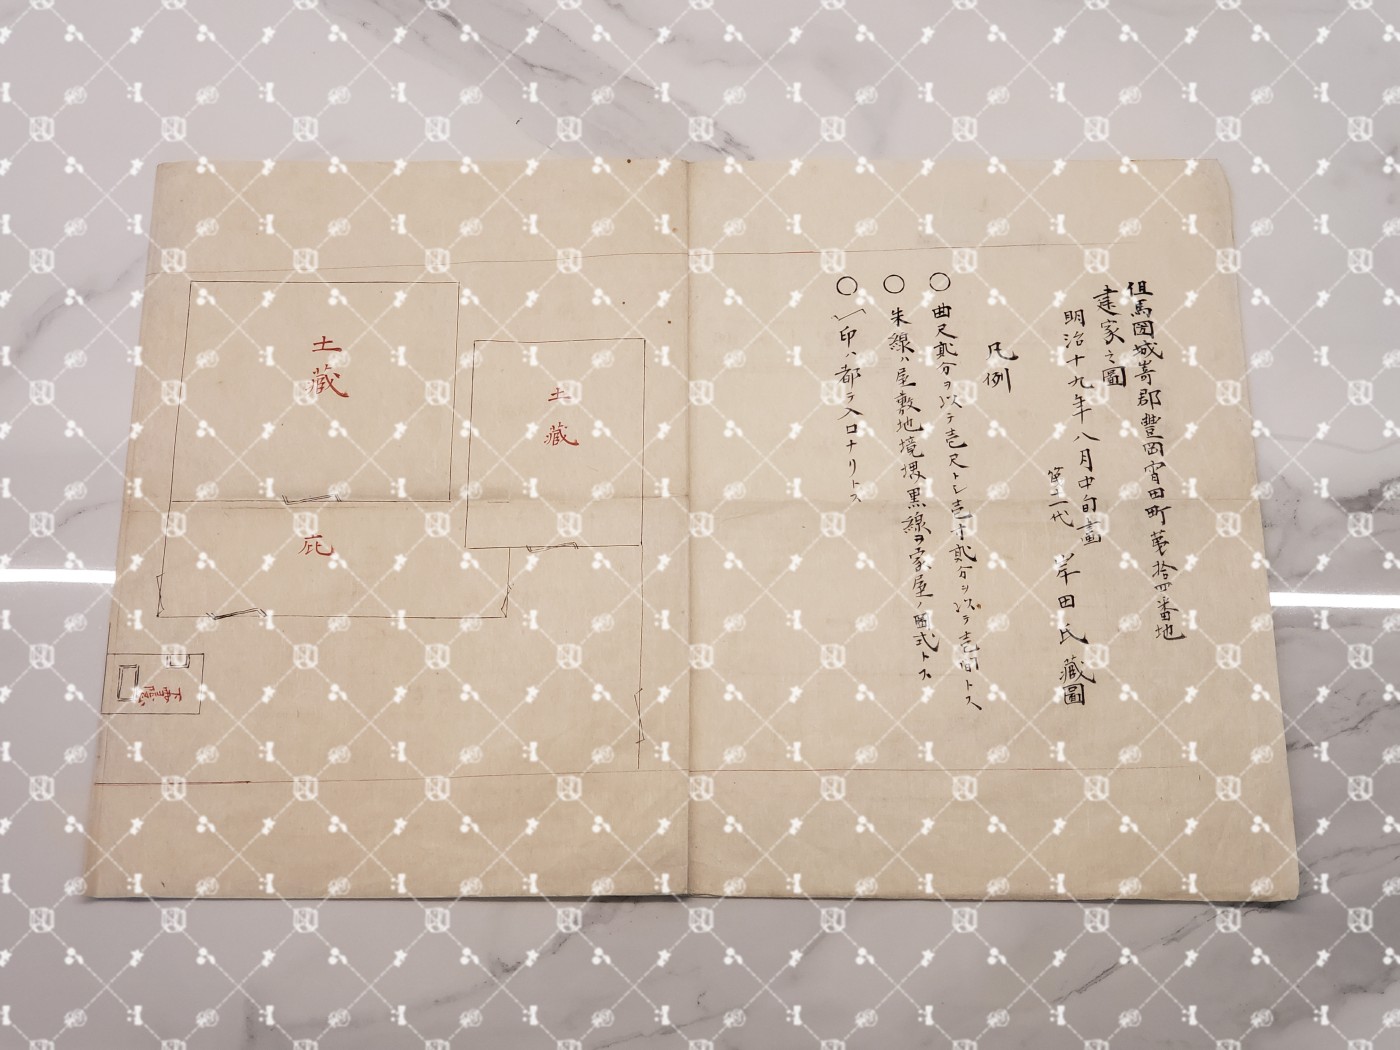 但馬国城嵜郡豊岡宵田町第拾四番地
建家之圖
明治十九年八月中旬畫
第二代 岸田氏藏圖
凡例
○ 曲尺貳分ヲ以テ壱尺トシ壱寸貳分ヲ以テ壱間トス
○ 朱線ハ屋敷地境界黒線ヲ家屋ノ圖式トス
○ 印ハ都テ入口ナリトス
土藏
土藏
庇